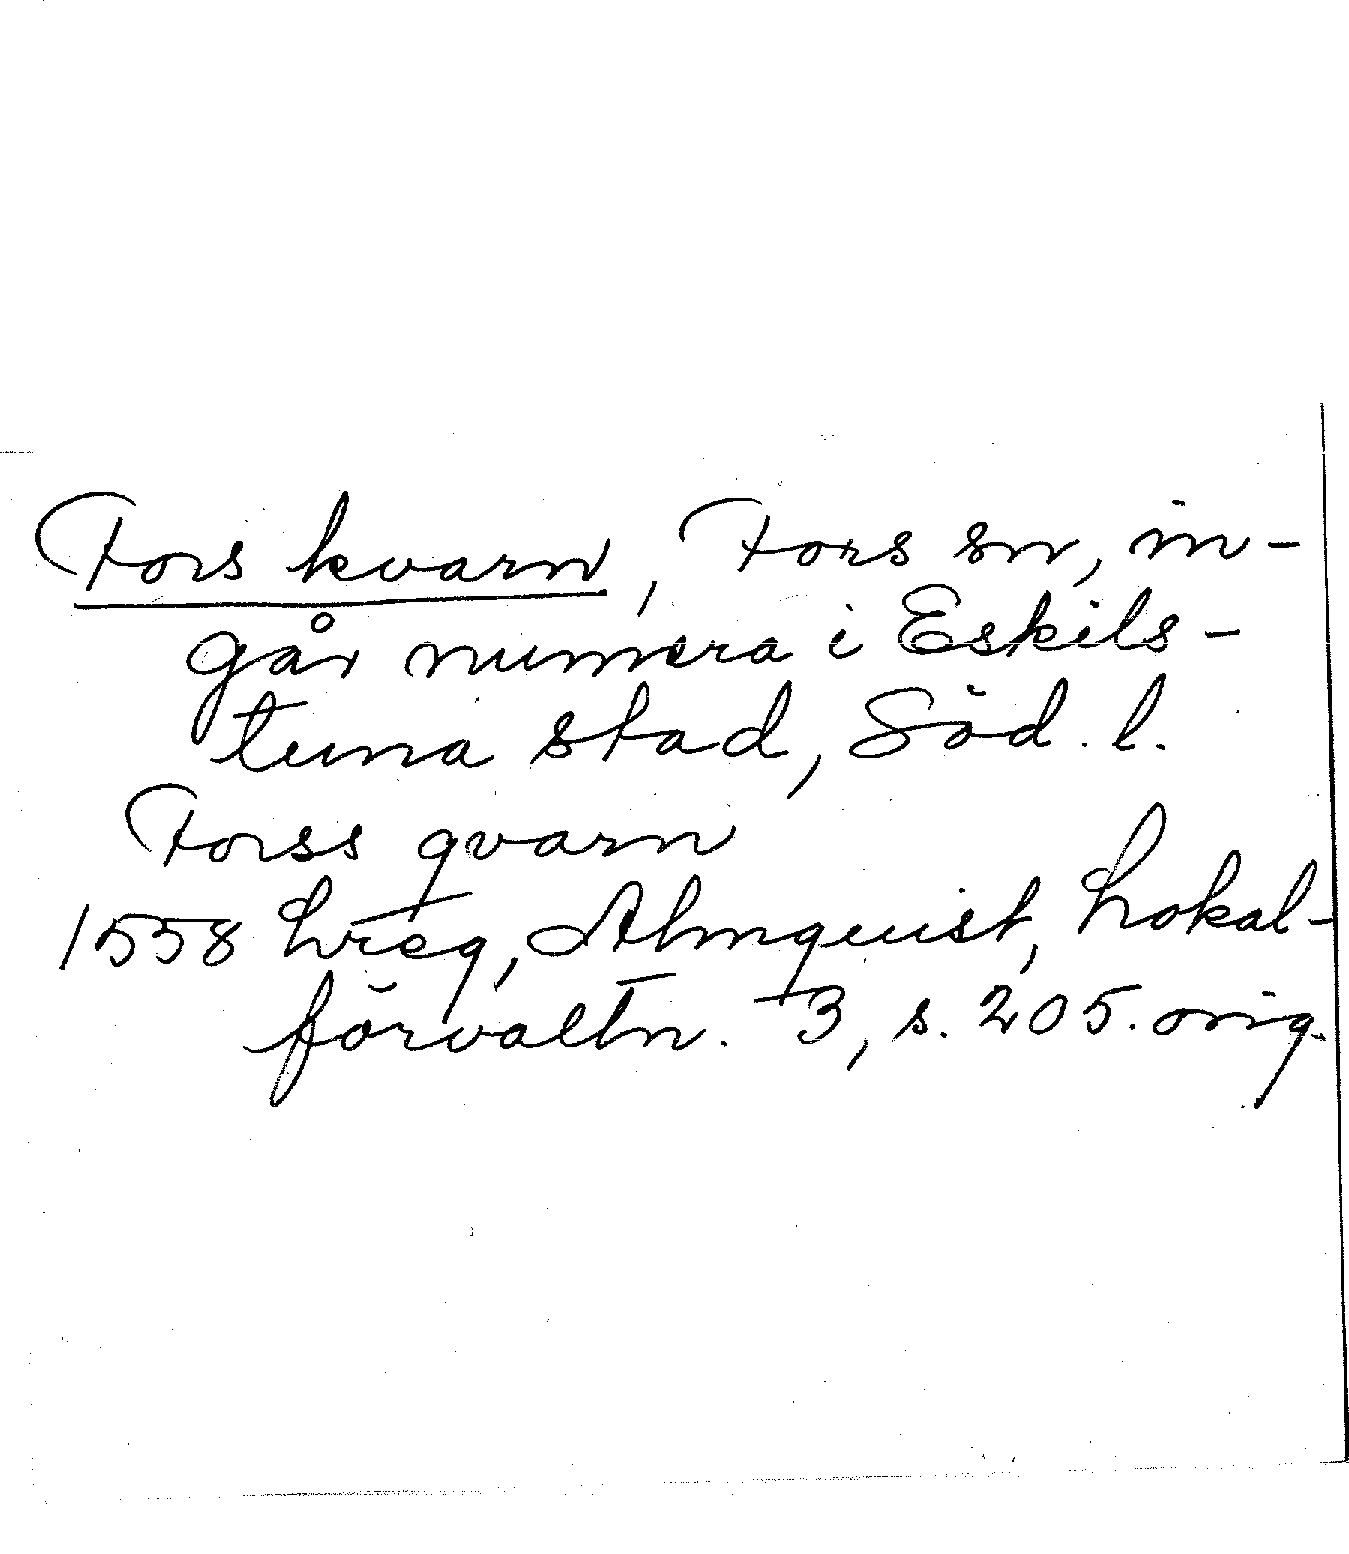 Fors kvarn, Fors sn, in-
går numera i Eskils-
tuna stad, Söd. l.
Forss qvarn
1558 Lreg, Almquist, Lokal-
förvaltn. 3, s. 205. orig.